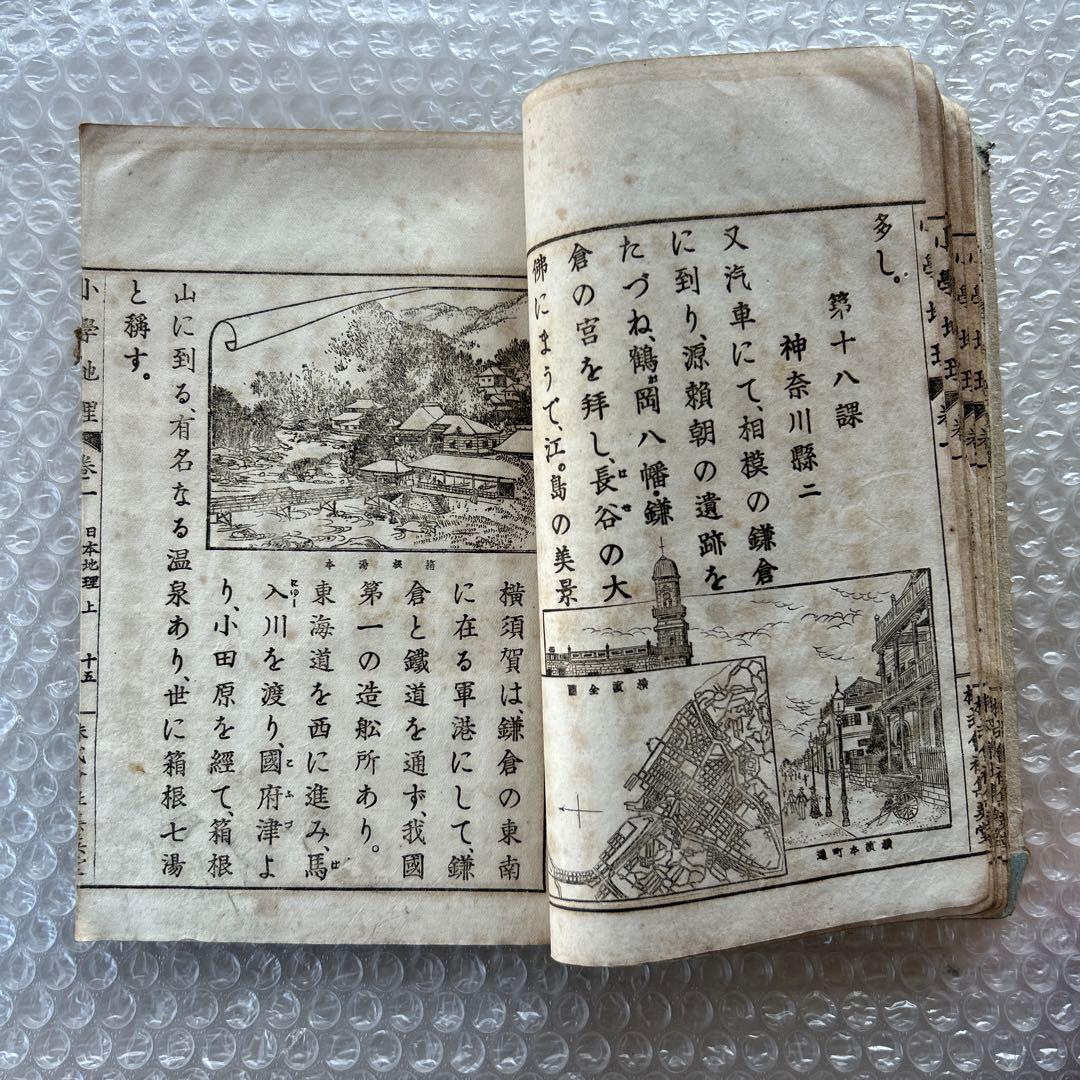 多し。
第十八課
神奈川縣二
又汽車にて、相模の鎌倉
に到り、源賴朝の遺跡を
たづね、鶴岡八幡・鎌
倉の宮を拜し、長谷の大
佛にまうで、江。島の美景
横濱全圖
横濱本町通
小學地理
卷一
箱根湯本
横須賀は、鎌倉の東南
に在る軍港にして、鎌
倉と鐵道を通ず、我國
第一の造舩所あり。
東海道を西に進み、馬
入川を渡り、國府津よ
り、小田原を經て、箱根
山に到る、有名なる温泉あり、世に箱根七湯
と稱す。
小學地理 卷一 日本地理上 十五